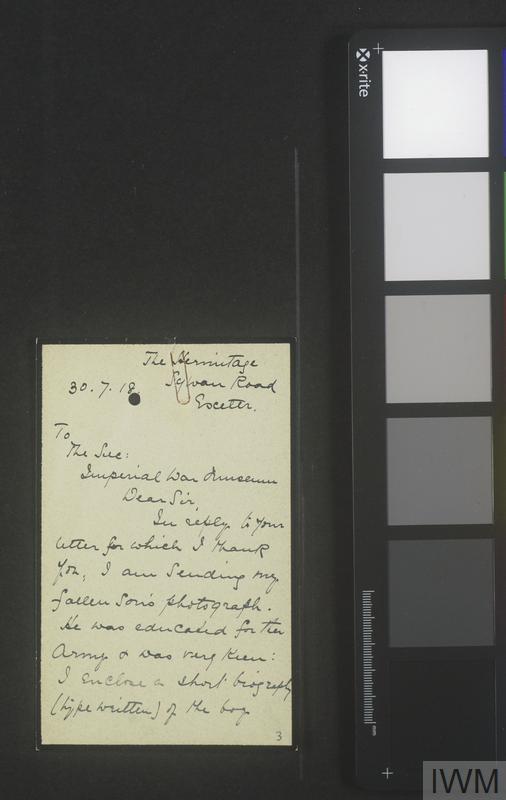 The Hermitage
30.7.18 Sylvan Road
Exeter.
To
The Sec:
Imperial War Museum
Dear Sir,
In reply to your
letter for which I thank
you, I am sending my
fallen Son's photograph.
He was educated for the
Army & was very keen:
I enclose a short biography
(type written) of the boy
3
x·rite
mm
IWM